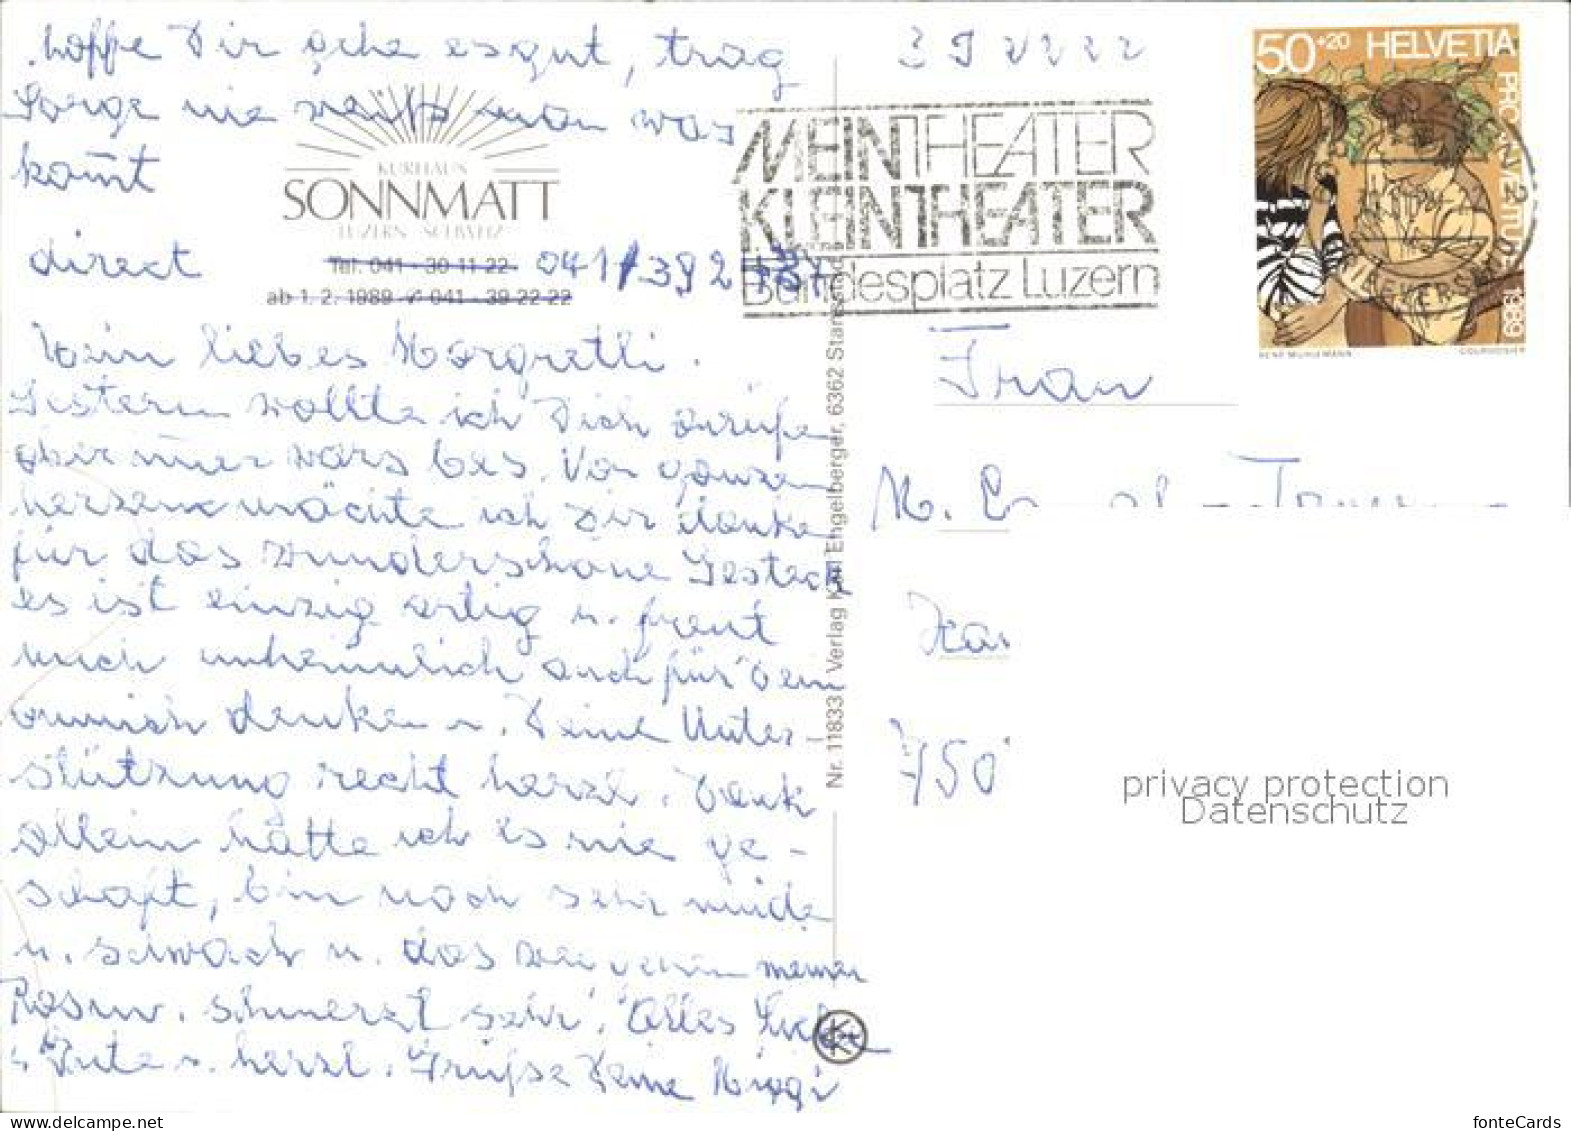 hoffe Dir gehe es gut, trag
Sorge nie weiss man was
kommt
KURHAUS
SONNMATT
LUZERN SCHWEIZ
direct
Tel. 041 - 30 11 22 041/392
ab 1. 2. 1989 041 - 39 22 22
Mein liebes Margretli.
Gestern wollte ich Dich anrufe
aber immer wars bes. Von ganzem
herzen möchte ich Dir danke
für das wunderschöne Gesteck
es ist einzig artig u. freut
mich unheimlich auch für Dein
an mich denken u. Deine Unter
stützung recht herzl. Dank
allein hätte ich es nie ge-
schaft, bin noch sehr müde
u. schwach u. das
schmerzt sehr. Alles Liebe
Gute u. herzl. Grüsse Deine
Nr. 11833 Verlag Engelberger, 6362 Stansstad
MEIN THEATER
KLEINTHEATER
Bundesplatz Luzern
50+20 HELVETIA
PRO JUVENTUTE 1989
RENE MUHLEMANN
COURVOISIER
Frau
M.
750
privacy protection
Datenschutz
K
fonteCards